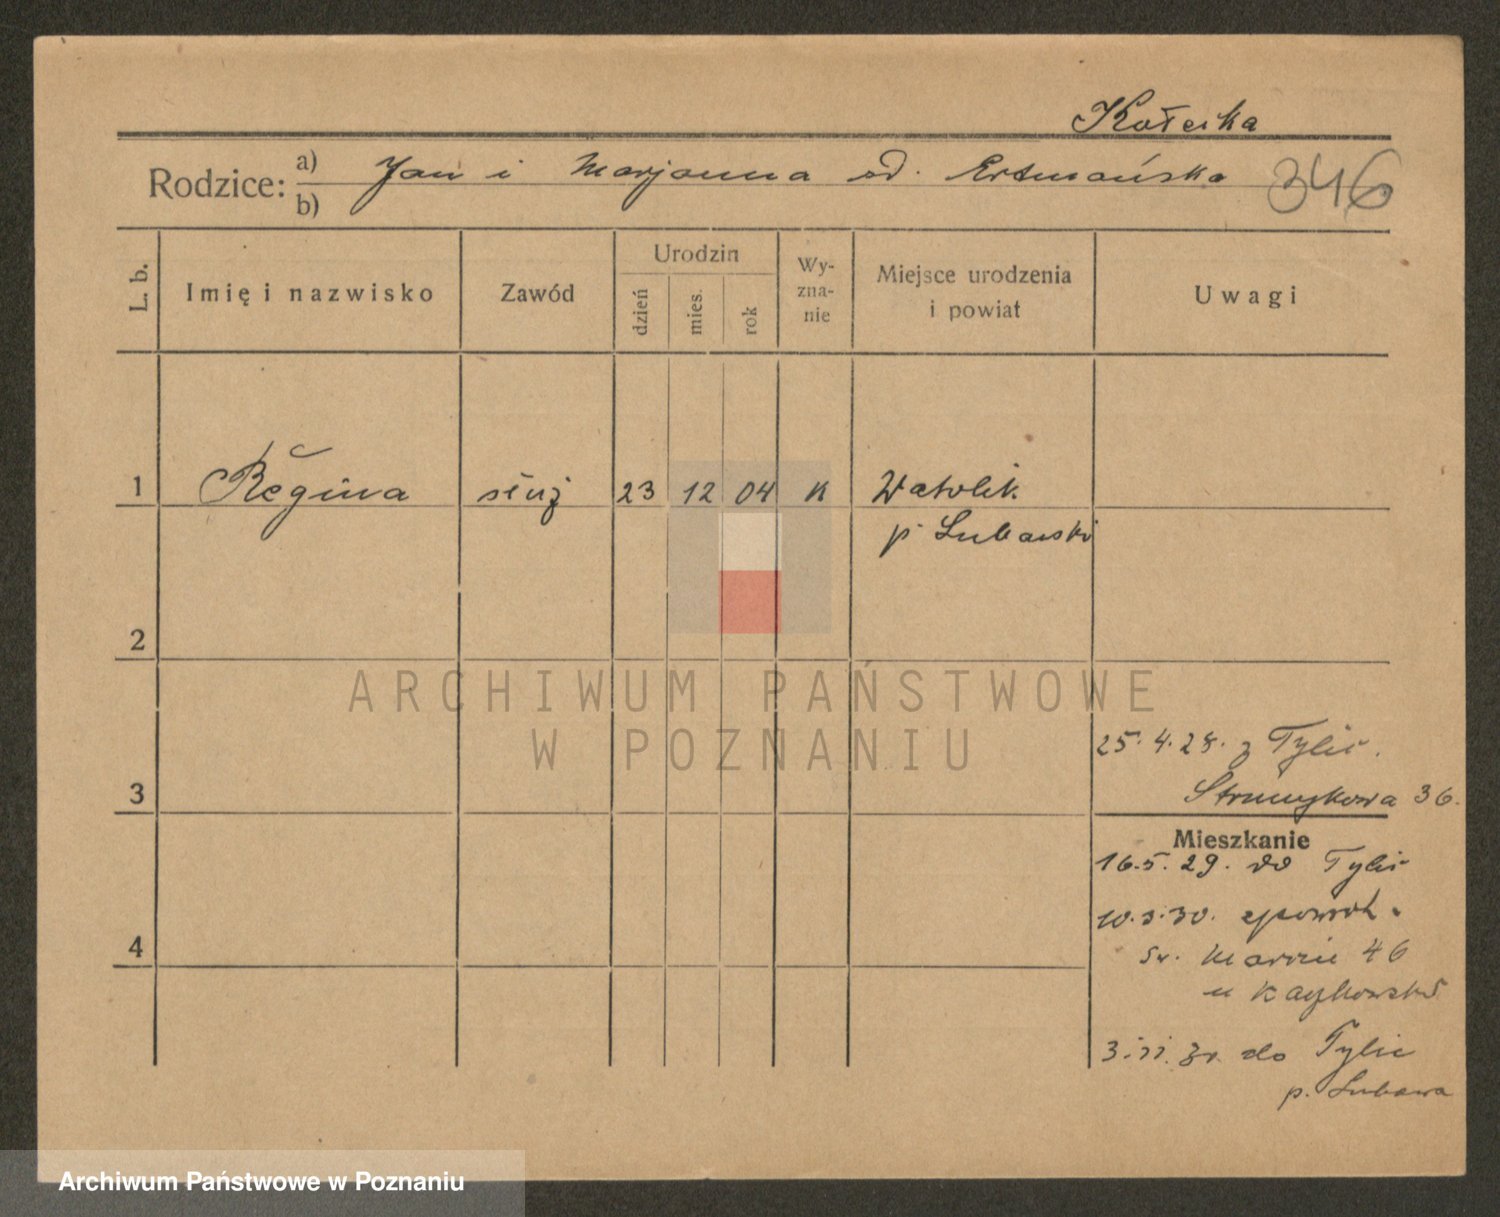 Kołecka
Rodzice: a) Jan i Marjanna od. Ertmańska
b)
346
L. b. Imię i nazwisko Zawód Urodzin dzień mies. rok Wy-zna-nie Miejsce urodzenia i powiat Uwagi
1 Regina służ 23 12 04 K Watolik
p Lubawski
2
ARCHIWUM PAŃSTWOWE
W POZNANIU
25.4.28. z Tylic.
3 Strumykowa 36.
Mieszkanie
16.5.29. do Tylic
10.3.30. zpowrot.
4 Św. Marcin 46
u Kaczkowski
do Tylic
p. Lubawa
Archiwum Państwowe w Poznaniu